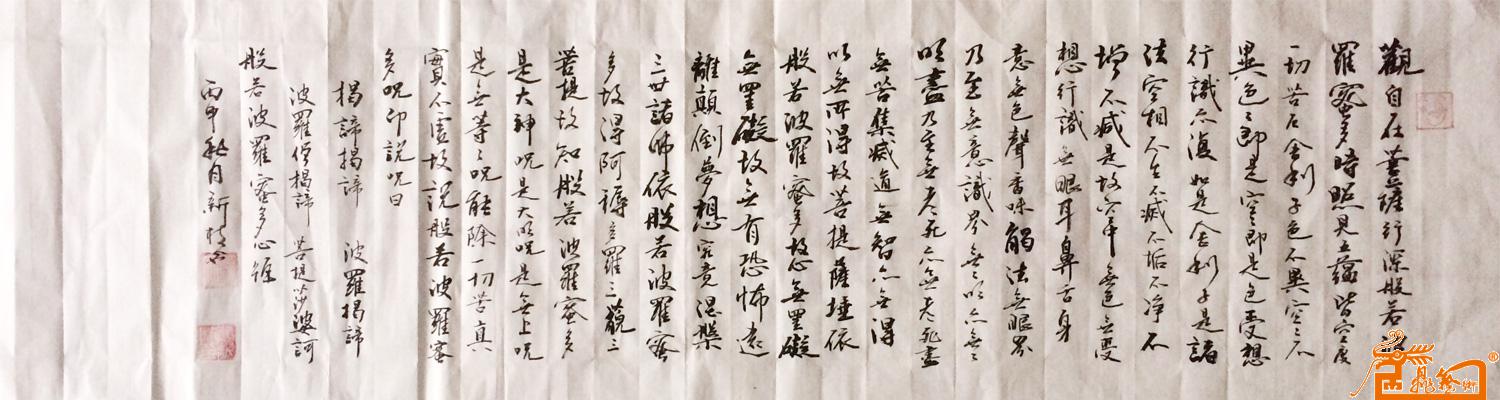 觀自在菩薩行深般若波
羅蜜多時照見五蘊皆空度
一切苦厄舍利子色不異空〻不
異色〻即是空〻即是色受想
行識亦復如是舍利子是諸
法空相不生不滅不垢不淨不
增不減是故空中無色無受
想行識無眼耳鼻舌身
意無色聲香味觸法無眼界
乃至無意識界無〻明亦無〻
明盡乃至無老死亦無老死盡
無苦集滅道無智亦無得
以無所得故菩提薩埵依
般若波羅蜜多故心無罣礙
無罣礙故無有恐怖遠
離顛倒夢想究竟涅槃
三世諸佛依般若波羅蜜
多故得阿耨多羅三藐三
菩提故知般若波羅蜜多
是大神咒是大明咒是無上咒
是無等〻咒能除一切苦真
實不虛故說般若波羅蜜
多咒即說咒曰
揭諦揭諦 波羅揭諦
波羅僧揭諦 菩提莎婆訶
般若波羅蜜多心經
丙申秋月新